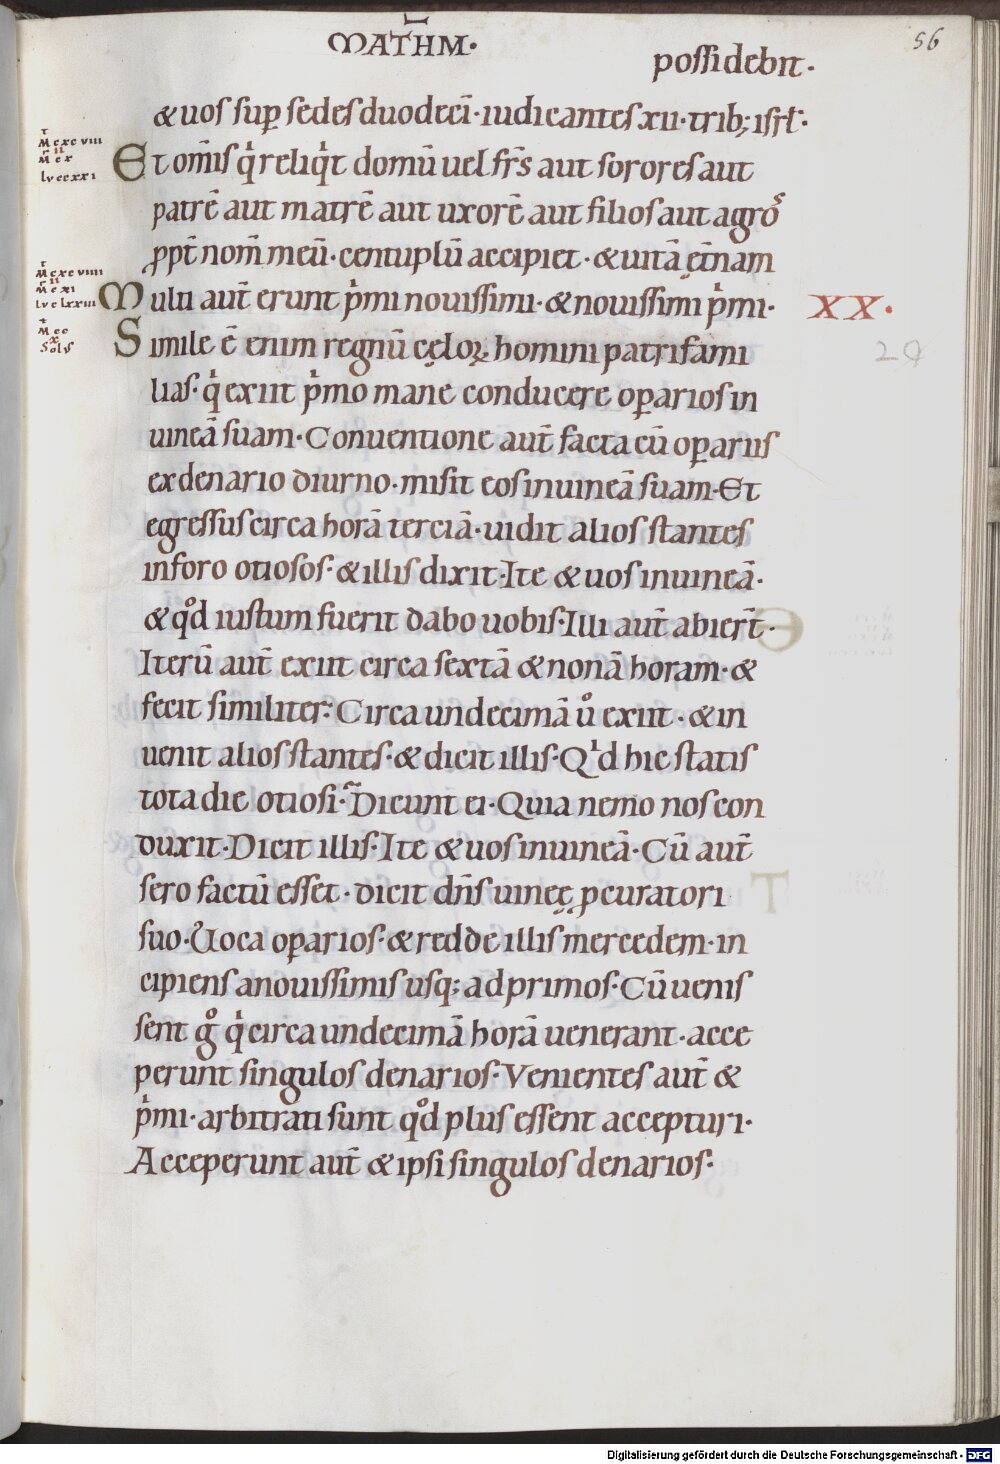 56
MATHM·
possidebit·
& uos sup̱ sedes duodecī· iudicantes xii· trib; isrł·
Et om̄is q̍ reliq̍t domū uel fr̄s aut sorores aut
patrē aut matrē aut uxorē aut filios aut agros
ꝓpt̄ nom̄ meū· centuplū accipiet· & uitā ęt̄nam
Multi aut̄ erunt p̍mi nouissimi· & nouissimi p̍mi·
XX·
Simile ē enim regnū cęloꝝ homini patrifami
lias· q̍ exiit p̍mo mane conducere oꝑarios in
uineā suam· Conuentione aut̄ facta cū oꝑariis
ex denario diurno· misit eos in uineā suam· Et
egressus circa horā terciā· uidit alios stantes
in foro otiosos· & illis dixit· Ite & uos in uineā·
& qͦd iustum fuerit dabo uobis· Illi aut̄ abier̄t·
Iterū aut̄ exiit circa sextā & nonā horam· &
fecit similiter· Circa undecimā uͦ exiit· & in
uenit alios stantes· & dicit illis· Qͥd hic statis
tota die otiosi· Dicunt ei· Quia nemo nos con
duxit· Dicit illis· Ite & uos in uineā· Cū aut̄
sero factū esset· dicit dn̄s uineę ꝓcuratori
suo· Uoca oꝑarios· & redde illis mercedem· in
cipiens a nouissimis usq; ad primos· Cū uenis
sent gͦ q̍ circa undecimā horā uenerant· acce
perunt singulos denarios· Venientes aut̄ &
p̍mi· arbitrati sunt qͦd plus essent accepturi·
Acceperunt aut̄ & ipsi singulos denarios·
Digitalisierung gefördert durch die Deutsche Forschungsgemeinschaft - DFG